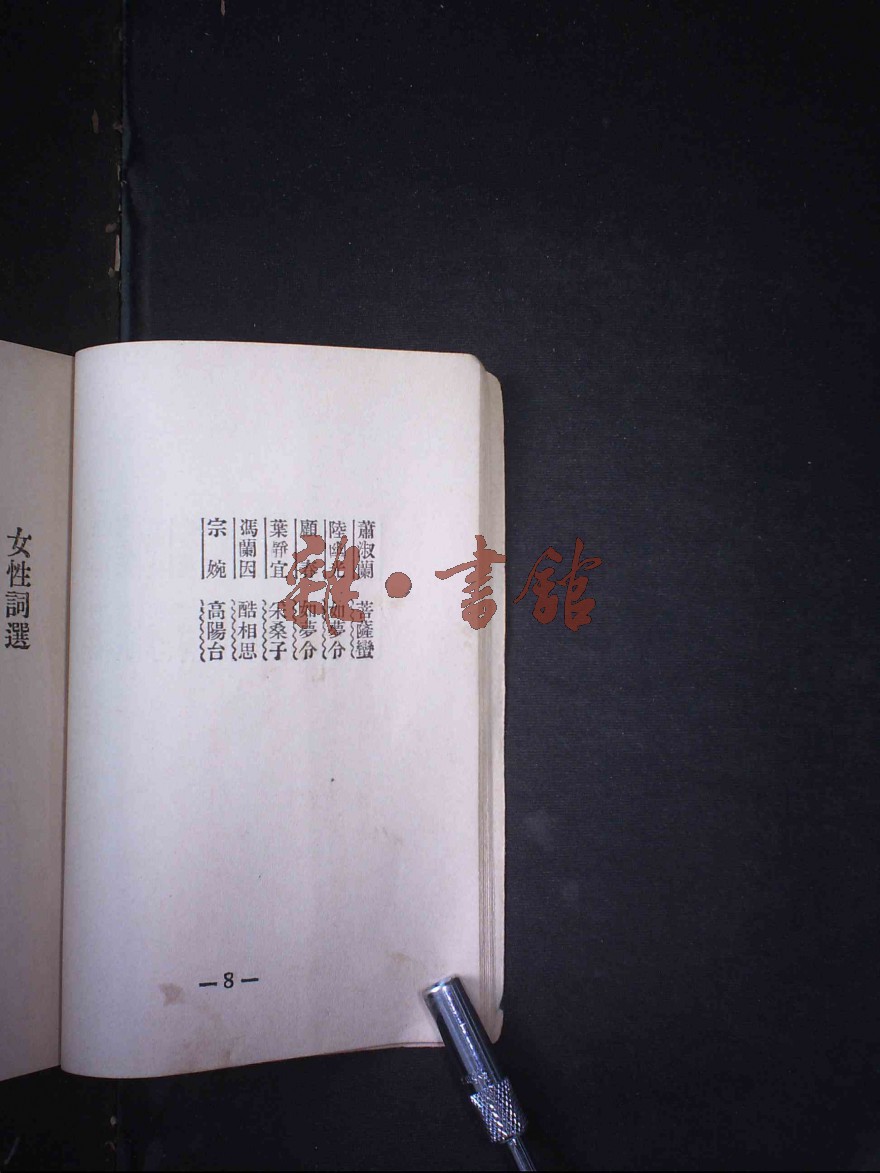 蕭淑蘭 菩薩蠻
陸幽光 如夢令
顧春 如夢令
葉靜宜 采桑子
馮蘭因 酷相思
宗婉 高陽台
—8—
女性詞選
雜·書館